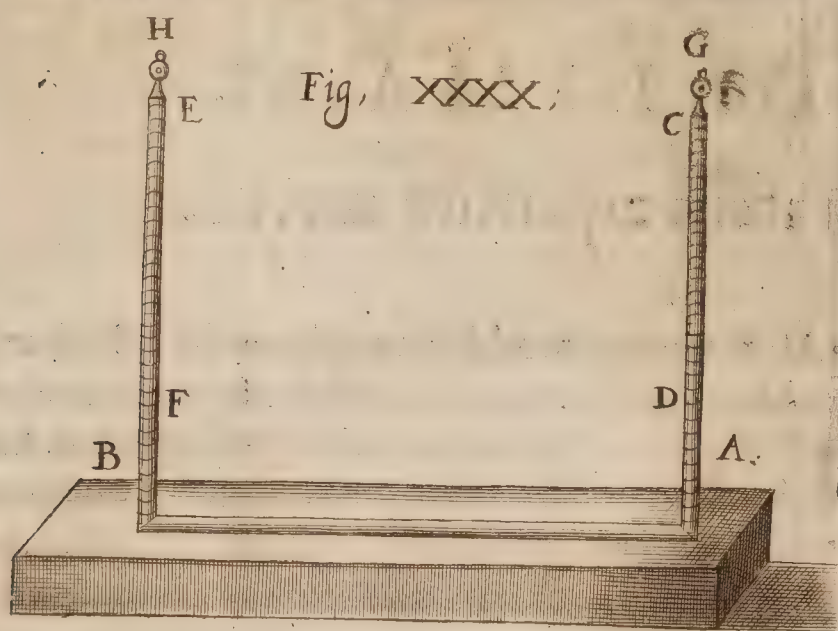 H
G
E
Fig, XXXX;
C
F
D
B
A.